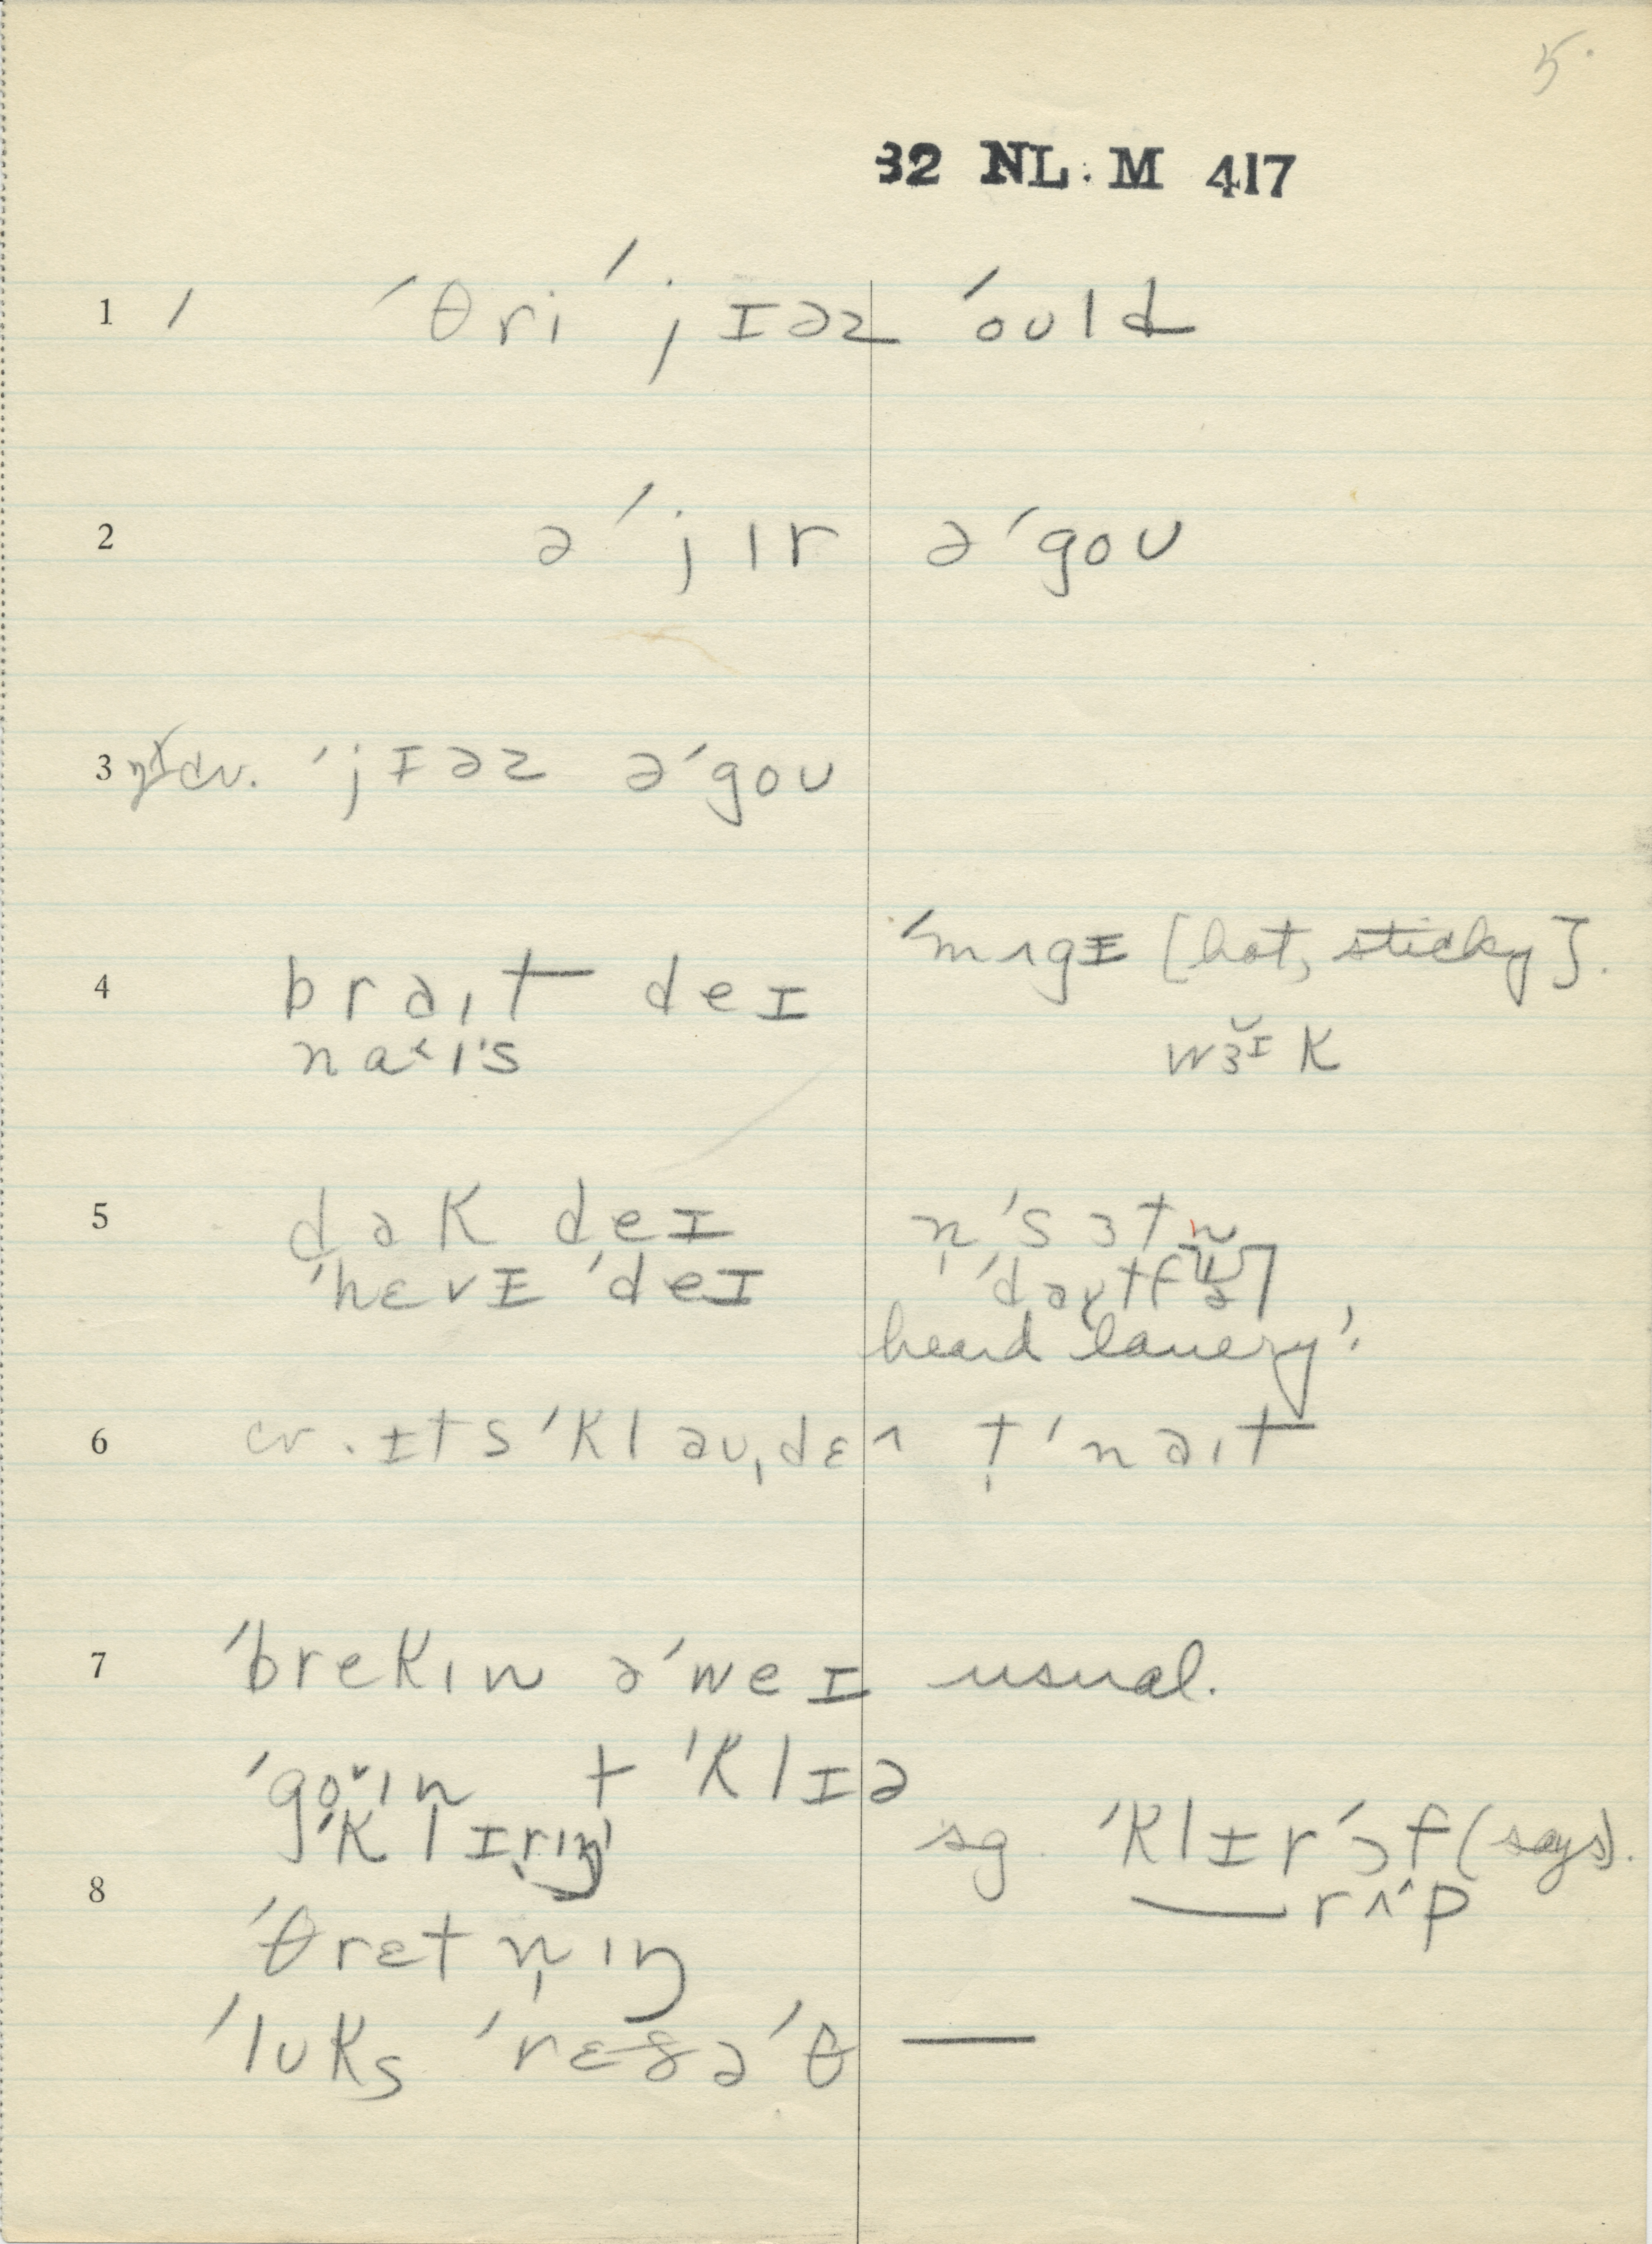 5.
32 NL: M 417
1 / ´ ˈθri ˈjɪəz ˈould
2 ə ˈjır ə ˈgoʊ
3 cv. ˈjɪəz ə ˈgoʊ
4 brəıt deɪ ˈmʌgɪ [hot, sticky].
naˁıˑs wɜ̆ɪk
5 dak deɪ n̩ ˈsɜtn
ˈhɛvɪ ˈdeɪ n̩
heard lauery?
6 cv. ɪts ˈklaʊˌdɛ^ t̩ ˈnəıt
7 ˈbrekın ə ˈweɪ usual.
ˈgoˇın t ˈklɪə
ˈklɪrıŋ sg. ˈklɪr ˈɔf (says).
8 — rʌ^p
ˈθrɛtn̩ıŋ
ˈlʊks ˈrɛðə ˈθ —